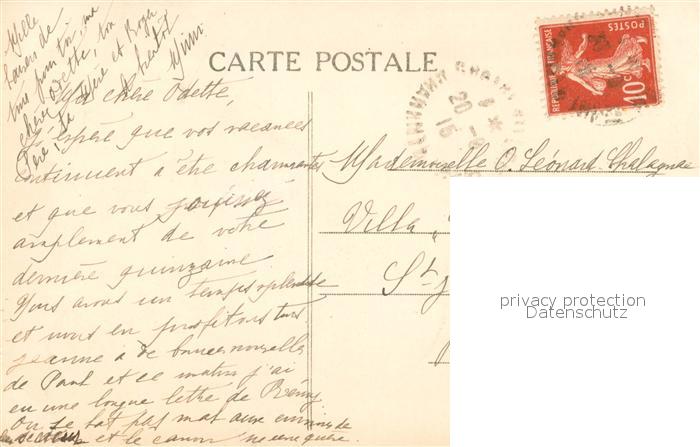 Mille
baisers de
tous pour toi, ma
chère Odette, ton
Père, ta Mère et Roger
bientôt
Mimi
CARTE POSTALE
Ma chère Odette,
J'espère que vos vacances
continuent à être charmantes
et que vous jouissez
amplement de votre
dernière quinzaine
Nous avons un temps splendide
et nous en profitons tous
Jeanne a de bonnes nouvelles
de Paul et ce matin j'ai
eu une longue lettre de Rémy
On se bat pas mal aux environs de
et le canon ne
REPUBLIQUE FRANÇAISE
POSTES
10c
20
15
Mademoiselle O. Léonard Chalagnac
Villa "
St J
privacy protection
Datenschutz